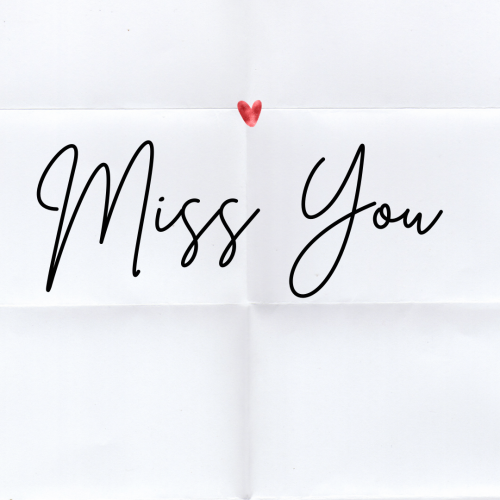 Miss You